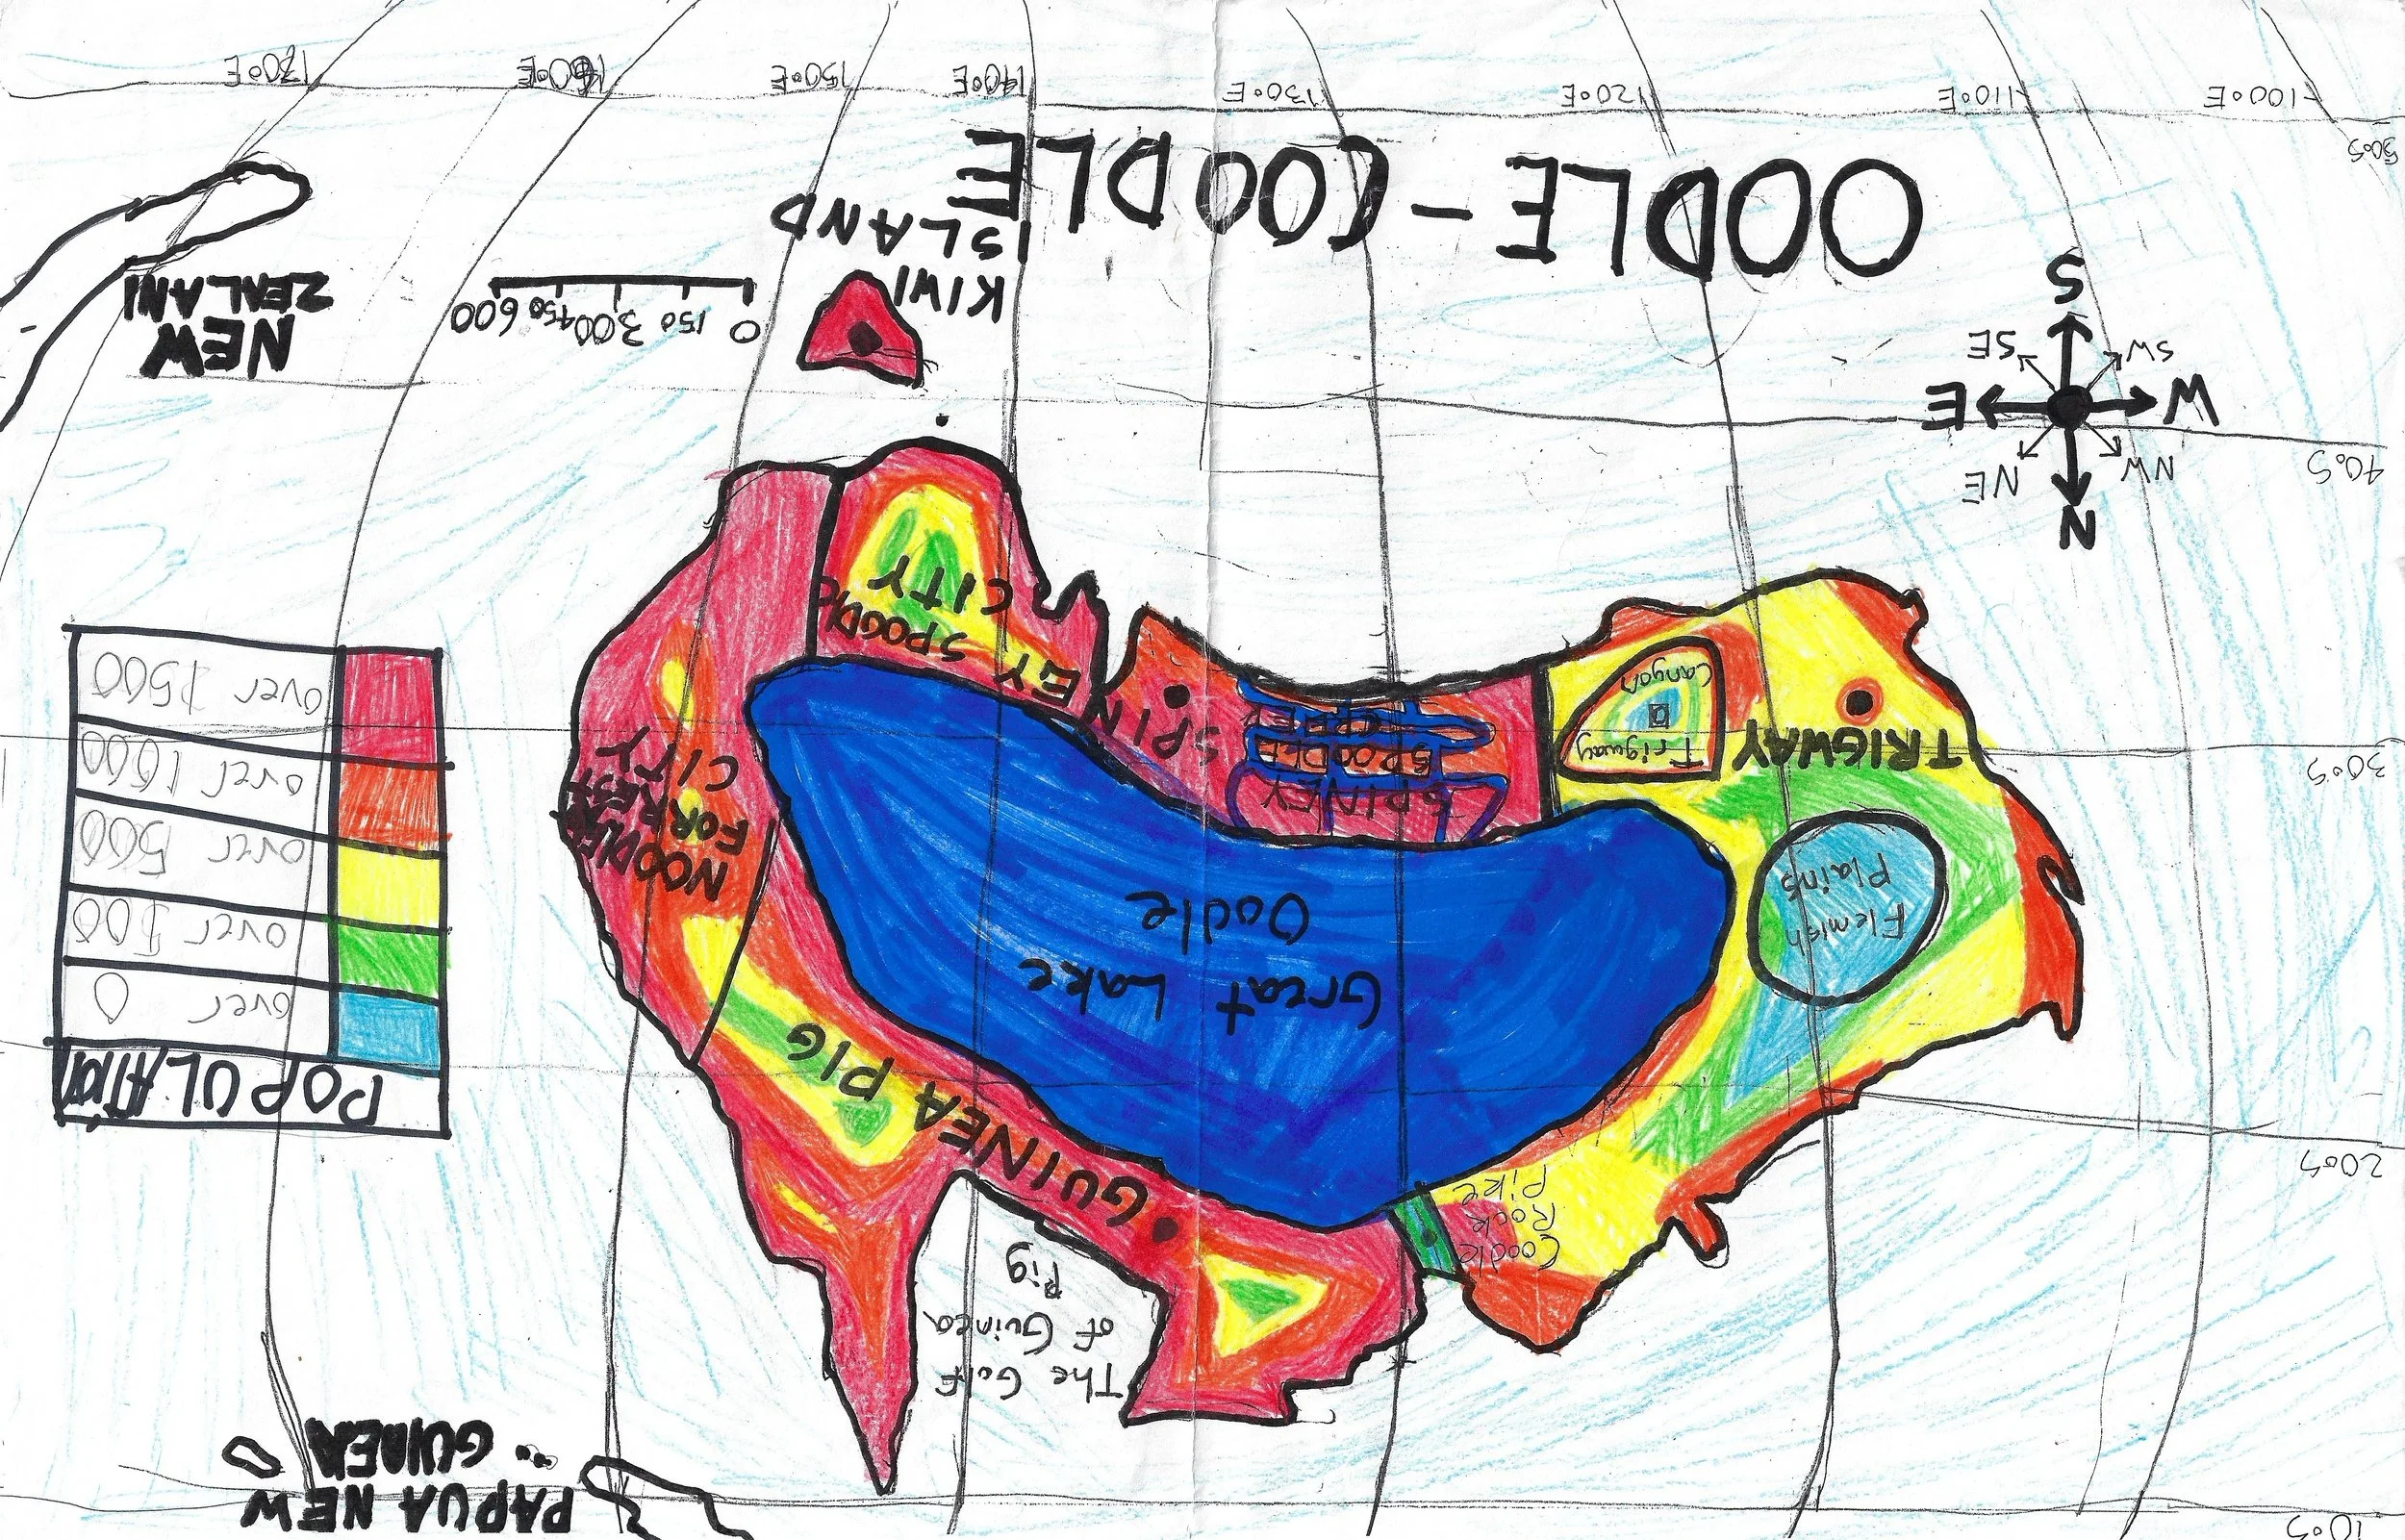 PAPUA NEW
GUINEA
10°S
The Golf
of Guinea
Pig
POPULATION
over 0
over 100
over 500
over 1000
over 1500
Coodle
Rock
Pike
20°S
GUINEA PIG
Great Lake
Oodle
Flemish
Plains
NOODLE
FORREST
CITY
TRIGWAY
Trigway
Canyon
SPINEY
SPOODLE
CDLE
SPINEY SPOODLE
CITY
30°S
N
NW
NE
W
E
SW
SE
S
40°S
KIWI
ISLAND
0 150 300 450 600
NEW
ZEALAND
OODLE-COODLE
50°S
100°E
110°E
120°E
130°E
140°E
150°E
160°E
170°E